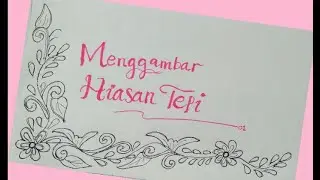 Menggambar
Hiasan Tepi